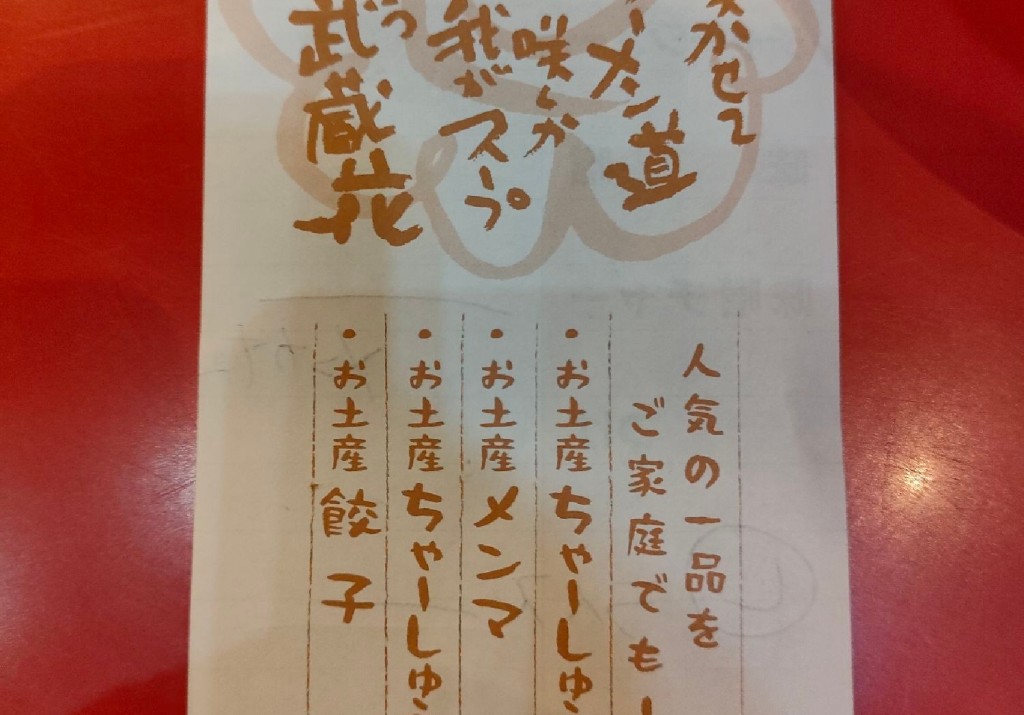 かせて
メン道
咲しか
我がスープ
う
武蔵花
人気の一品を
ご家庭でも
・お土産ちゃーしゅ
・お土産メンマ
・お土産ちゃーしゅ
・お土産餃子